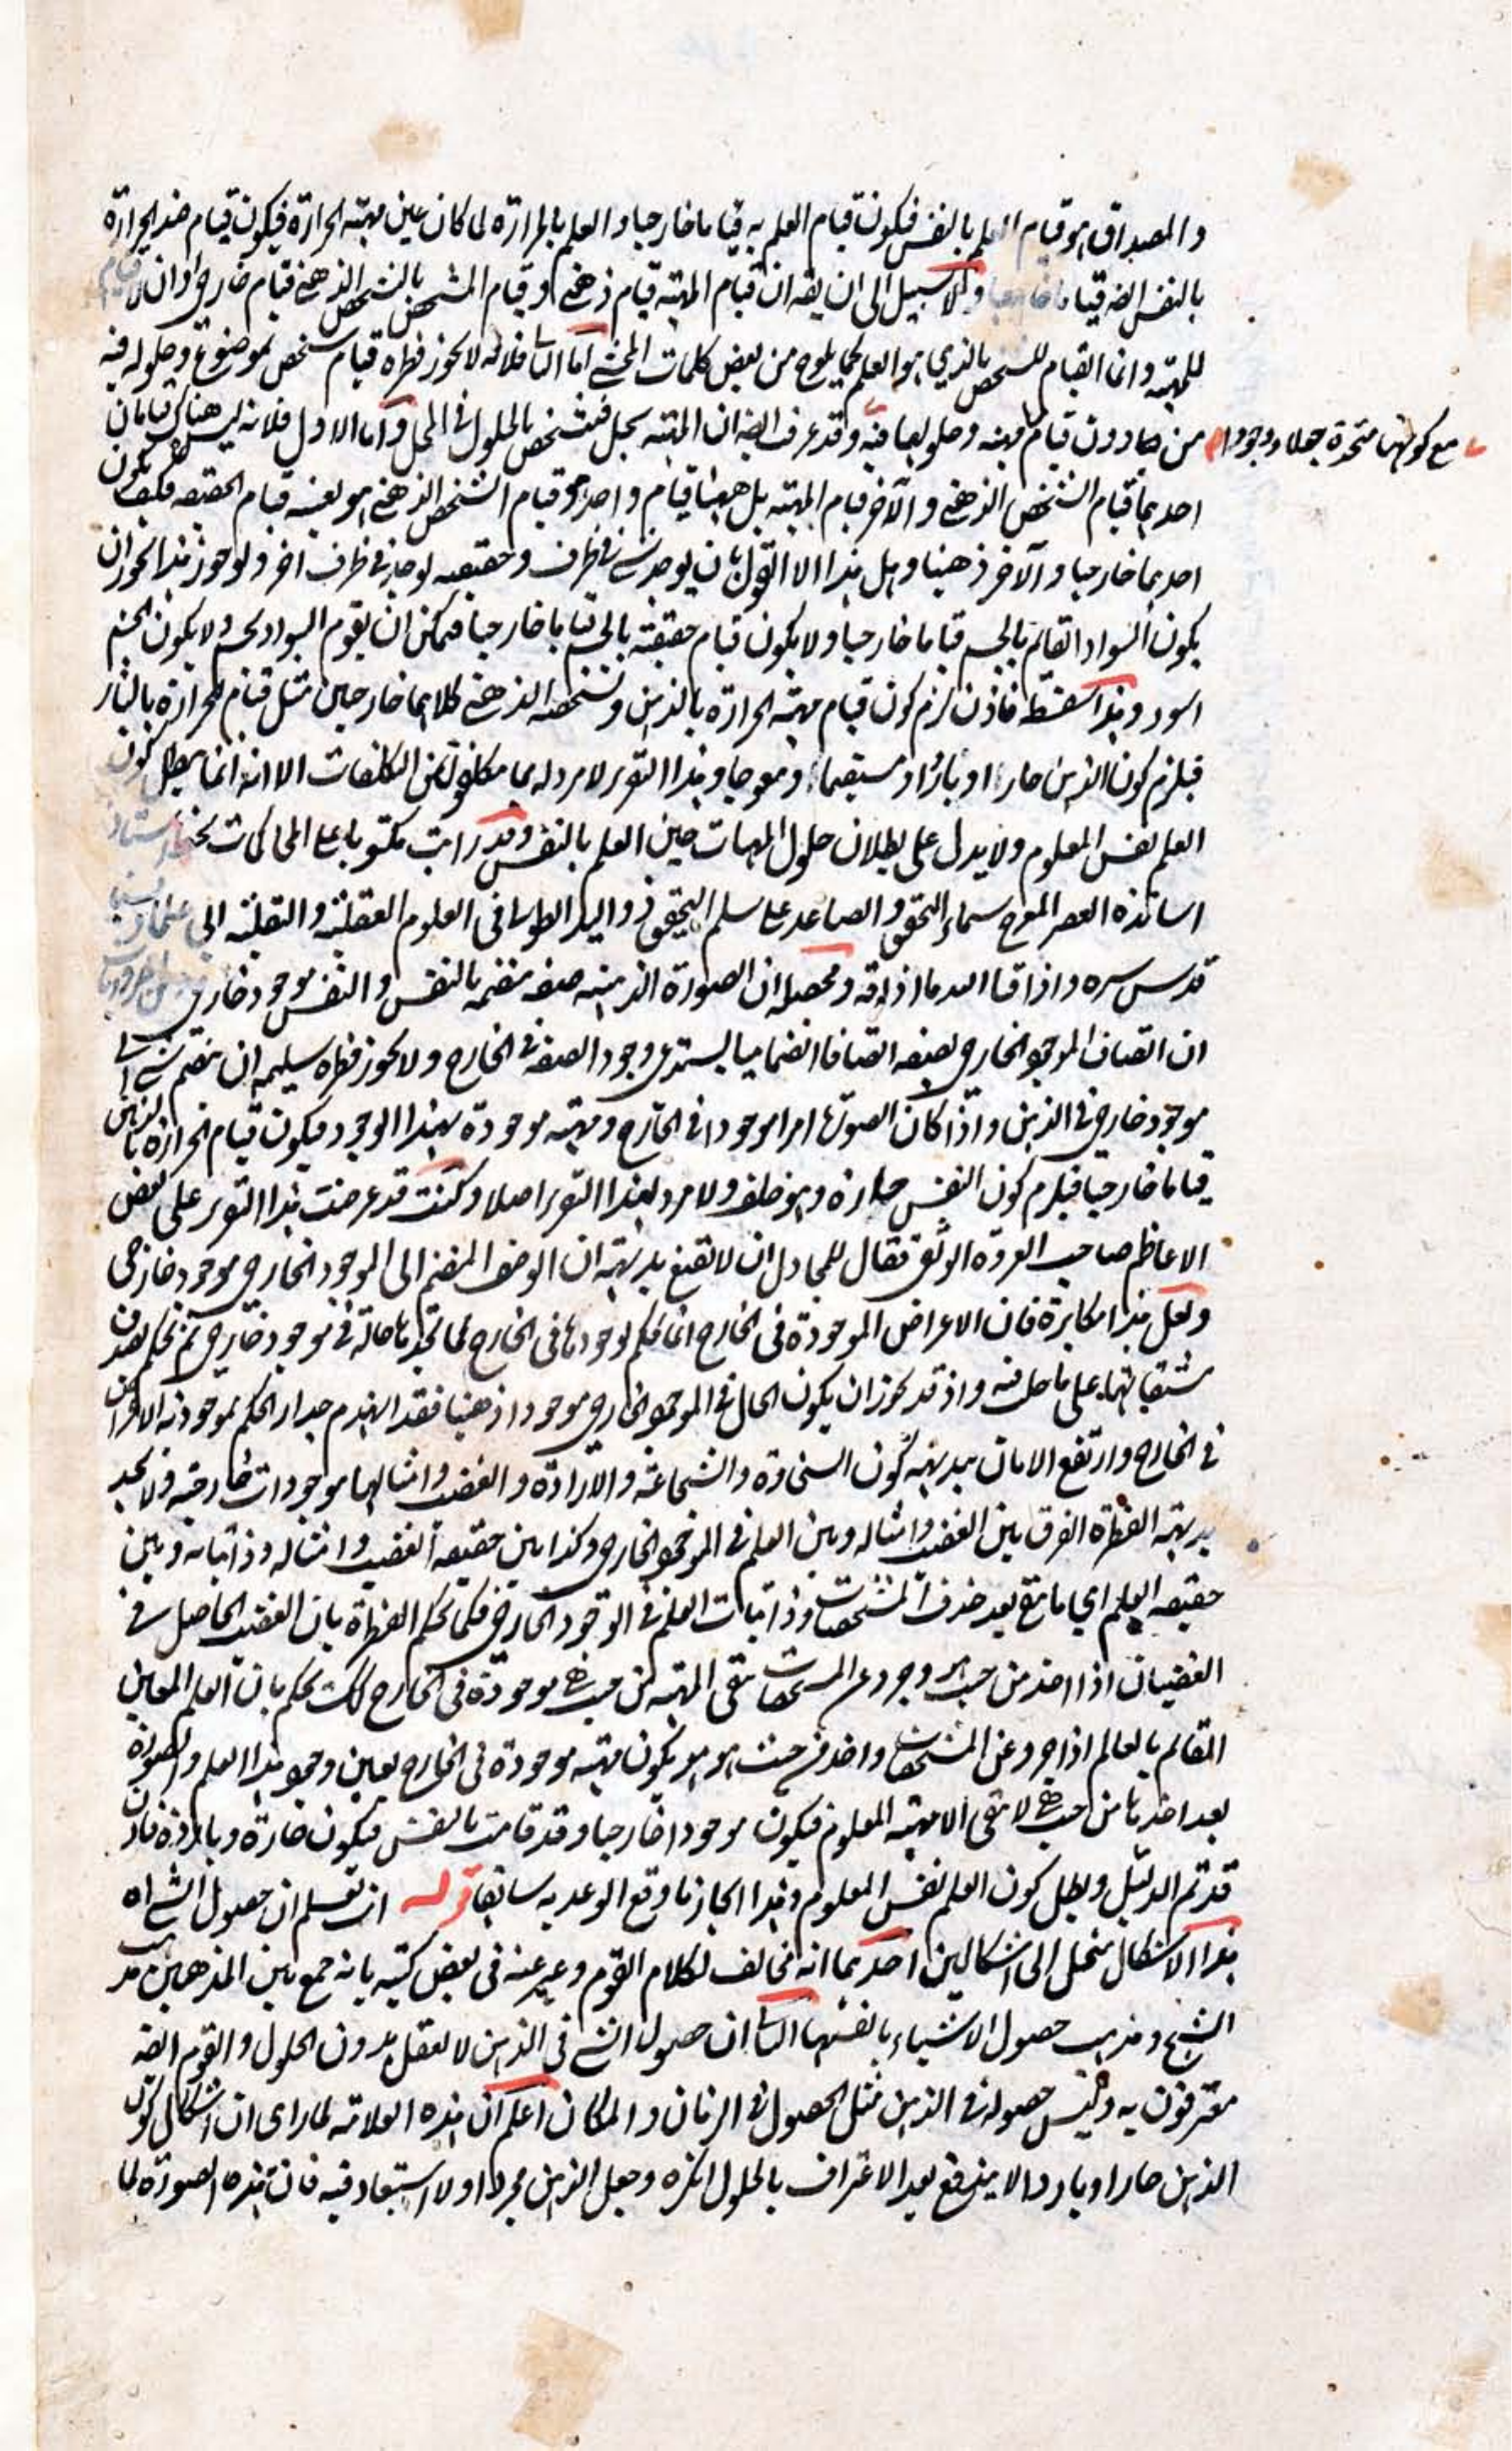 والمصداق هو قيام العلم بالنفس فيكون قيام العلم به قياما خارجيا والعلم بالحرارة لما كان عين مهية الحرارة فيكون قيام هذه الحرارة
بالنفس ايضا قياما خارجيا ولا سبيل الى ان يقه ان قيام المهية قيام ذهني وقيام المشخص بالتشخص الذهني قيام خارجي او ان لا قيام
للمهية وانما القيام للشخص الذي هو العلم كما يلوح من بعض كلمات المحشي اما الثاني فلانه لا يجوز فطرة قيام شخص بموضوع وحلوله فيه
مع كونهما متحدة جعلا ووجودا
من دون قيام مهيته وحلولها فيه وقد عرفت ايضا ان المهية بجعل فتشخص بالحلول في المحل واما الاول فلانه ليس هناك قيامان
احدهما قيام الشخص الذهني والآخر قيام المهية بل ههنا قيام واحد هو قيام الشخص الذهني هو بعينه قيام الحقيقة فكيف يكون
احدهما خارجيا والآخر ذهنيا وهل هذا الا القول بان يوجد شئ في ظرف وحقيقته توجد في ظرف اخر ولو جوز هذا لجوز ان
يكون السواد القائم بالجسم قياما خارجيا ولا يكون قيام حقيقته بالجسم قياما خارجيا فيمكن ان يقوم السواد بجسم ولا يكون الجسم
اسود وهذا سفسطة فاذن لزم كون قيام مهية الحرارة بالذهن وتشخصه الذهني كلاهما خارجيين مثل قيام الحرارة بالنار
فيلزم كون الذهن حارا او باردا ومستقيما ومعوجا وهذا التقرير لا مرد له بما تكلفوا من التكلفات الا انه انما يبطل كون
العلم نفس المعلوم ولا يدل على بطلان حلول المهيات حين العلم بالنفس وقد رايت مكتوبا على المحاكمات بخط استاذ
اساتذة العصر المعرج سماء التحقق والصاعد على سلم التحقيق ذو اليد الطولى في العلوم العقلية والنقلية الى
قدس سره واذاقنا الله ما اذاقه ومحصله ان الصورة الذهنية صفة منضمة بالنفس والنفس موجود خارجي
ان اتصاف الموجود الخارجي بصفة اتصافا انضماميا يستدعي وجود الصفة في الخارج ولا يجوز فطرة سليمة ان ينضم شئ الى
موجود خارجي في الذهن واذا كان الصورة امرا موجودا في الخارج ومهيته موجودة بهذا الوجود فيكون قيام الحرارة بالذهن
قياما خارجيا فيلزم كون النفس حارة وهو خلف ولا مرد لهذا التقرير اصلا وكنت قد عرضت هذا التقرير على بعض
الاعاظم صاحب العروة الوثقى فقال للمجادل ان لا تقنع بديهته ان الوصف المنضم الى الموجود الخارجي موجود خارجي
ولعل هذا مكابرة فان الاعراض الموجودة في الخارج انما نحكم بوجودها في الخارج لما نجدها حالة في موجود خارجي ثم نحكم بصدق
مشتقاتها على ما حل فيه واذ قد يجوز ان يكون الحال في الموجود الخارجي موجودا ذهنيا فقد انهدم جدار الحكم بموجودية الاعراض
في الخارج وارتفع الامان ببديهة كون السخاوة والشجاعة والارادة والغضب وامثالها موجودات خارجية ولا تجد
بديهة الفطرة الفرق بين الغضب وامثاله وبين العلم في الموجود الخارجي وكذا بين حقيقة الغضب وامثاله وذاتياته وبين
حقيقة العلم اي ما بقي بعد حذف المشخصات وذاتيات العلم في الوجود الخارجي فكما تحكم الفطرة بان الغضب الحاصل في
الغضبان اذا اخذ من حيث هو وجرد عن المشخصات تبقى المهية من حيث هي موجودة في الخارج كذلك تحكم بان العلم المعين
القائم بالعالم اذا جرد عن المشخصات واخذ من حيث هو هو يكون مهيته موجودة في الخارج بعين وجود هذا العلم والصورة
بعد اخذها من حيث هي لا تبقى الا مهية المعلوم فيكون موجودا خارجيا وقد قامت بالنفس فيكون حارة وباردة فاذن
قد تم الدليل وبطل كون العلم نفس المعلوم وهذا انجاز ما وقع الوعد به سابقا قوله انت تعلم ان حصول الشئ اه
هذا الاشكال منحل الى اشكالين احدهما انه مخالف لكلام القوم وعبر عنه في بعض كتبه بانه جمع بين المذهبين مذهب
الشبح ومذهب حصول الاشياء بانفسها الثاني ان حصول الشئ في الذهن لا يعقل بدون الحلول والقوم ايضا
معترفون به وليس حصوله في الذهن مثل الحصول في الزمان والمكان اعلم ان هذه العلامة لما راى ان اشكال كون
الذهن حارا وباردا لا يندفع بعد الاعتراف بالحلول انكره وجعل الذهن مجردا ولا استبعاد فيه فان هذه الصورة لما